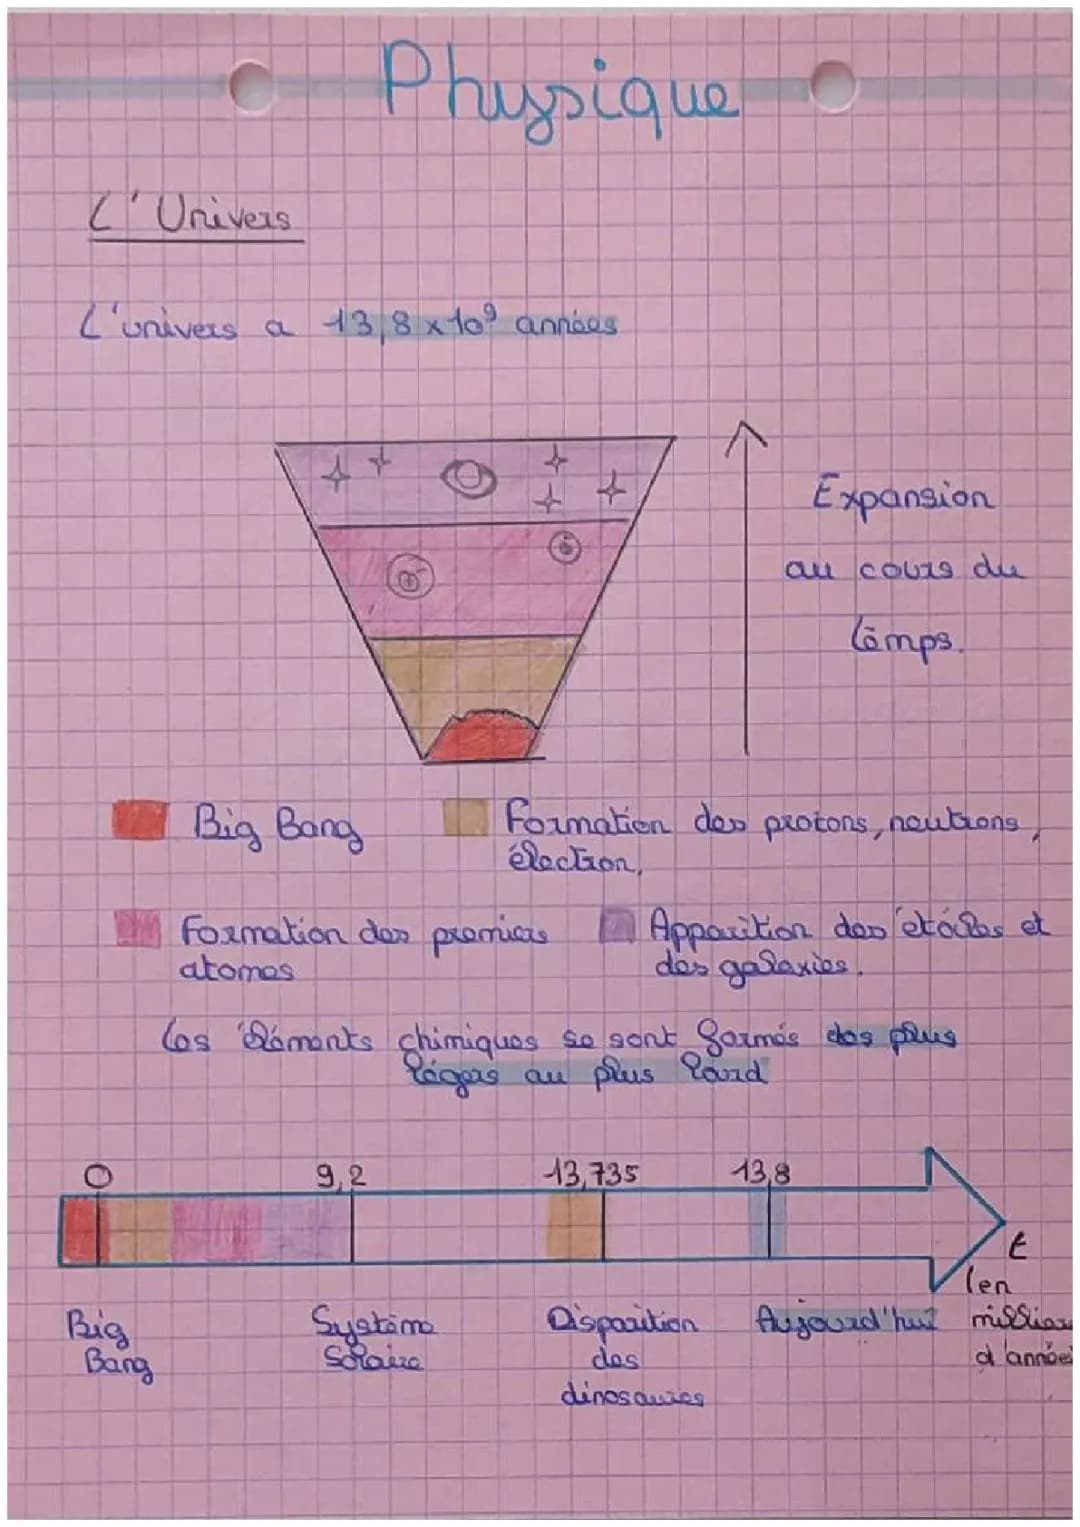 Physique
L'Univers
L'univers a 13,8 x 10⁹ années
Expansion
au cours du
temps.
Big Bang
Formation des protons, neutrons,
électron,
Formation des premiers
atomes
Apparition des étoiles et
des galaxies.
Les éléments chimiques se sont formés des plus
légers au plus lourd
0 9,2 13,735 13,8
t
(en
milliar
d'année
Big
Bang
Système
Solaire
Disparition
des
dinosaures
Aujourd'hui